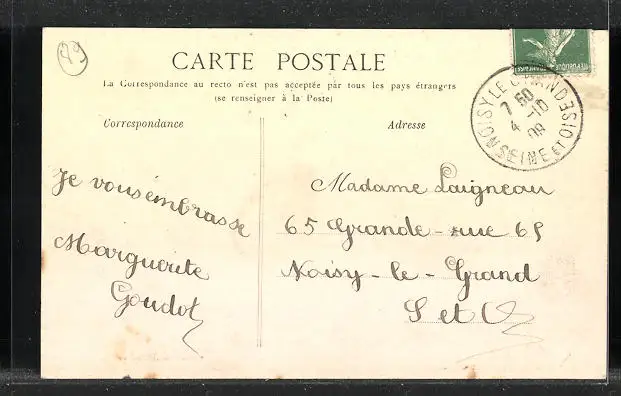 79
CARTE POSTALE
La Correspondance au recto n'est pas acceptée par tous les pays étrangers
(se renseigner à la Poste)
Correspondance
Adresse
Je vous embrasse
Marguerite
Goudot
Madame Laigneau
65 Grande-rue 65
Noisy-le-Grand
S et O
NOISY LE GRAND
SEINE ET OISE
7 50
4 -10
09